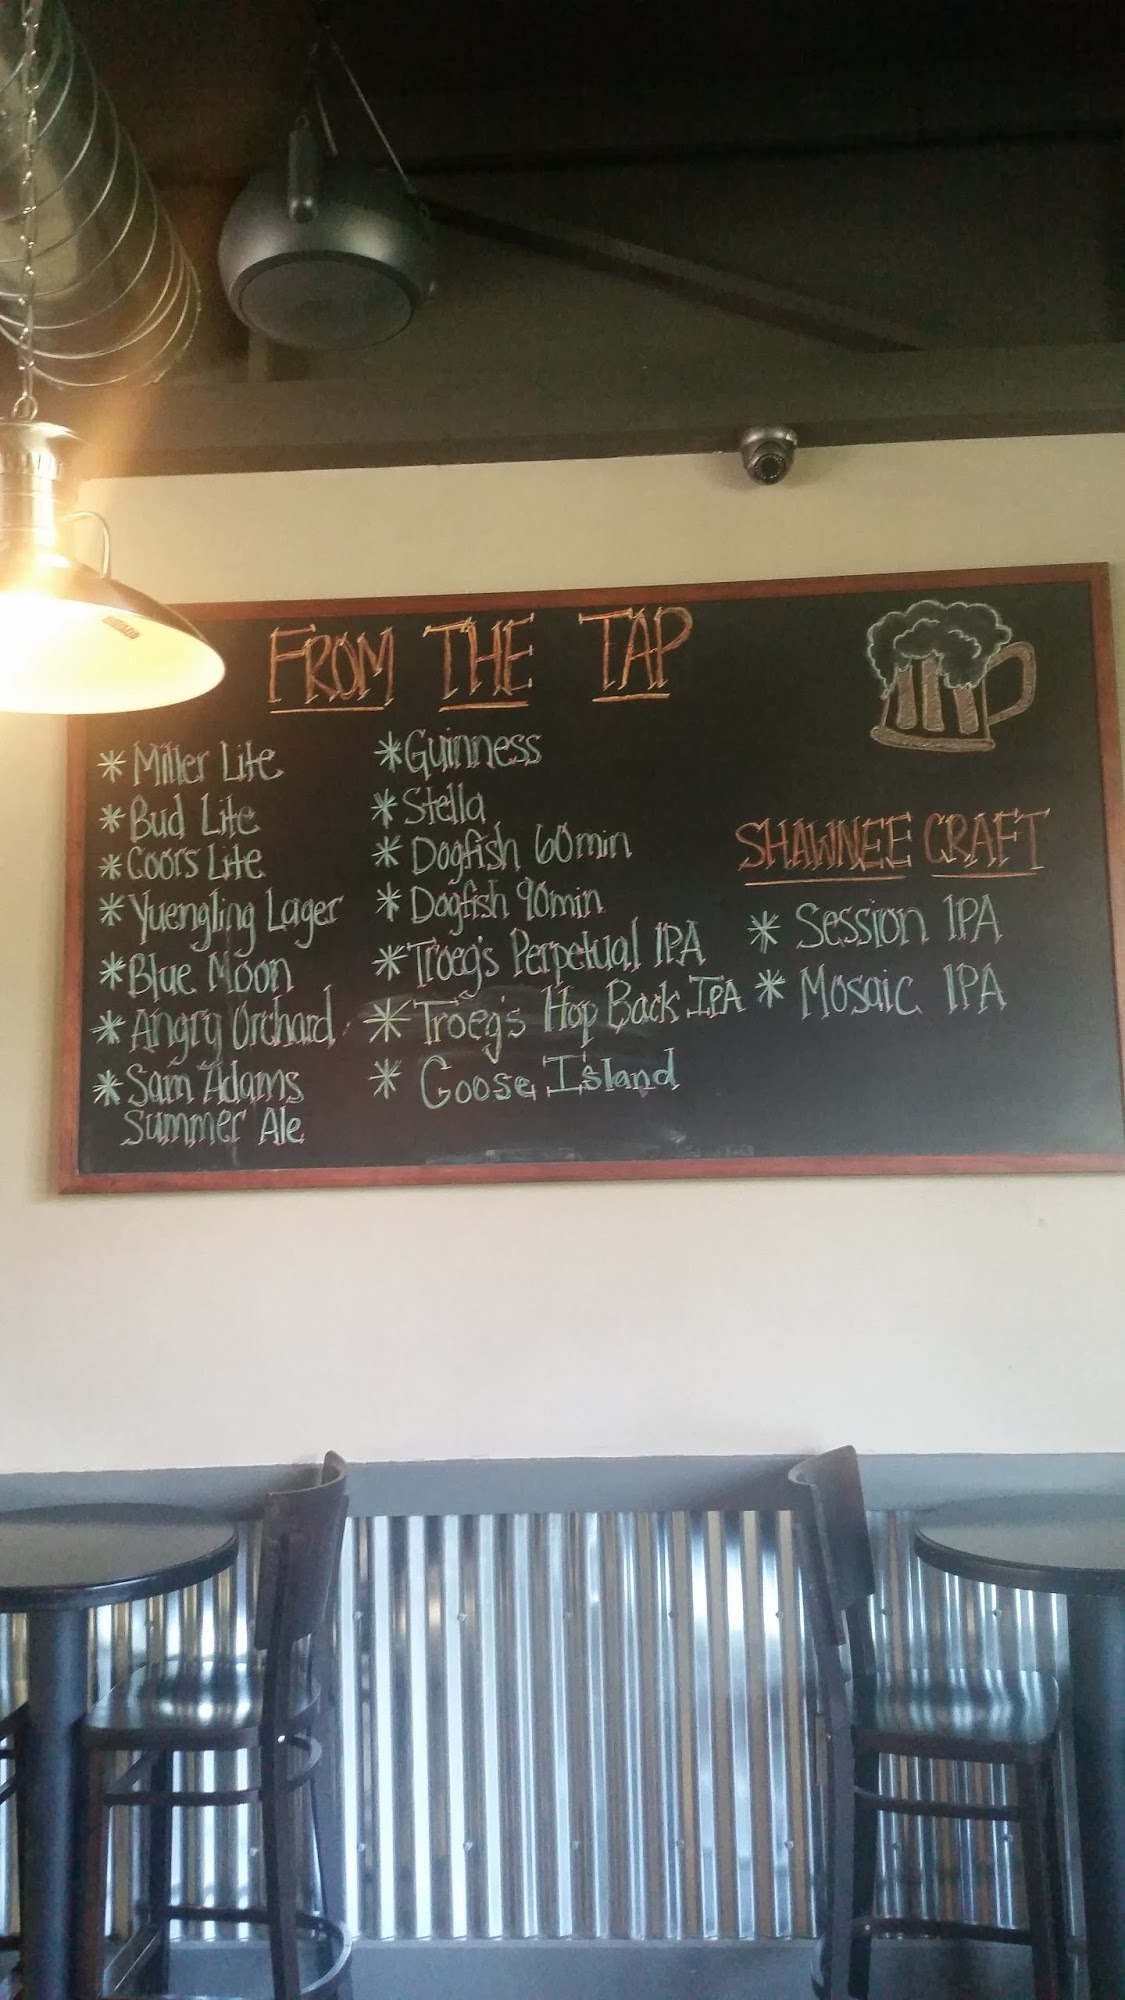 FROM THE TAP
* Miller Lite
* Bud Lite
* Coors Lite
* Yuengling Lager
* Blue Moon
* Angry Orchard
* Sam Adams
Summer Ale
* Guinness
* Stella
* Dogfish 60min
* Dogfish 90min
* Troeg's Perpetual IPA
* Troeg's Hop Back IPA
* Goose Island
SHAWNEE CRAFT
* Session IPA
* Mosaic IPA